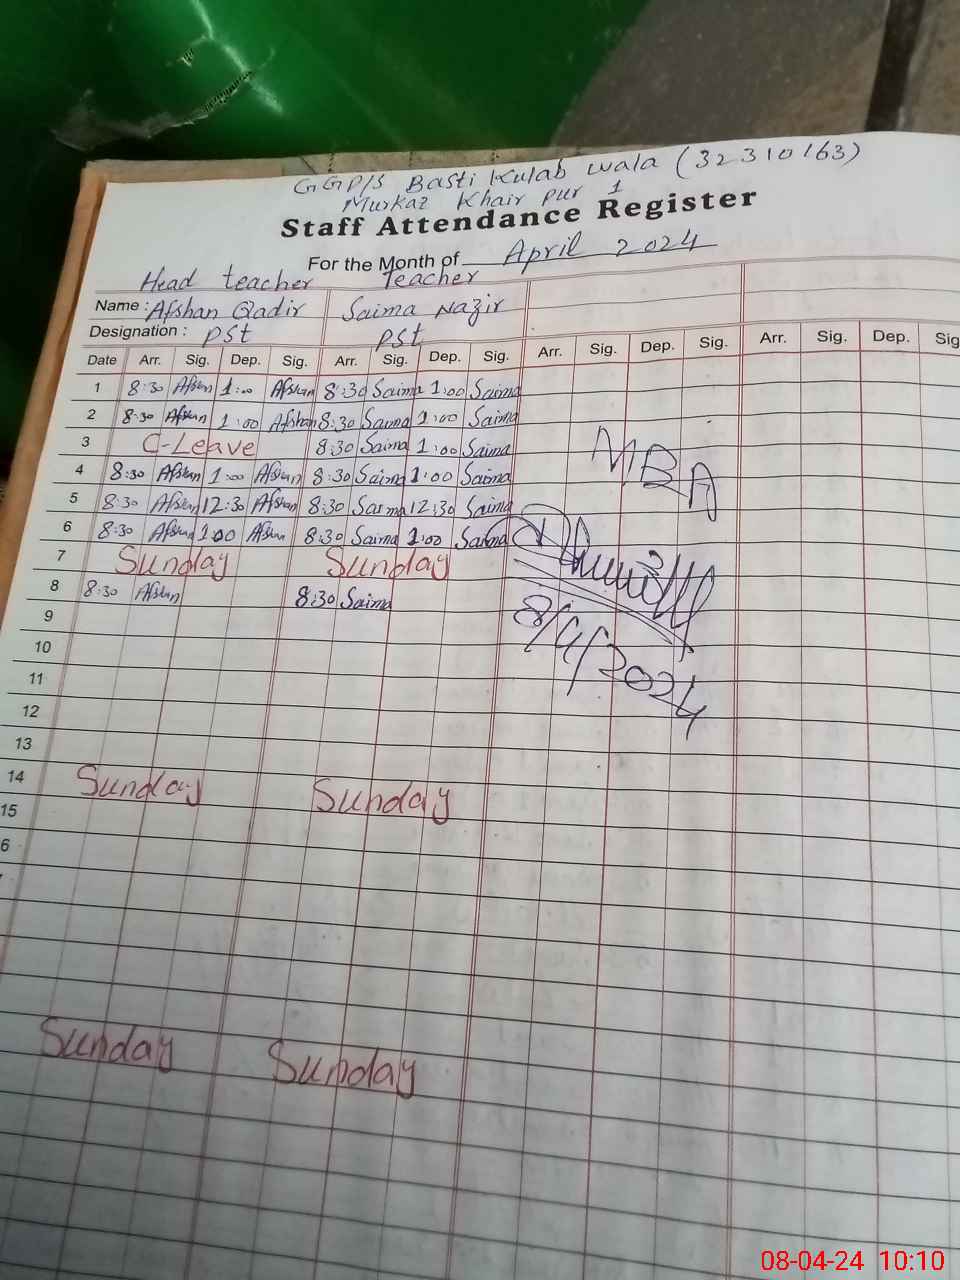 GGP/S Basti Kulab wala (32310163)
Murkaz Khair pur 1
Staff Attendance Register
For the Month of April 2024
Head teacher teacher
Name : Afshan Qadir Saima Nazir
Designation : PSt PSt
Date Arr. Sig. Dep. Sig. Arr. Sig. Dep. Sig. Arr. Sig. Dep. Sig. Arr. Sig. Dep. Sig
1 8:30 Afshan 1:00 Afshan 8:30 Saima 1:00 Saima
2 8:30 Afshan 1:00 Afshan 8:30 Saima 1:00 Saima
3 C-Leave 8:30 Saima 1:00 Saima
4 8:30 Afshan 1:00 Afshan 8:30 Saima 1:00 Saima
MBA
5 8:30 Afshan 12:30 Afshan 8:30 Saima 12:30 Saima
6 8:30 Afshan 1:00 Afshan 8:30 Saima 1:00 Saima
7 Sunday Sunday
8 8:30 Afshan 8:30 Saima
8/4/2024
9
10
11
12
13
14 Sunday Sunday
15
6
Sunday Sunday
08-04-24 10:10